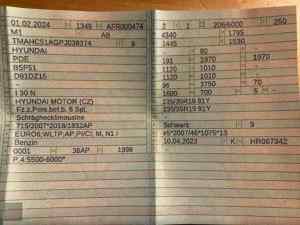 01.02.2024 H 1349 AFR000474
M1 AB
9
HYUNDAI
PDE
B5P51
D81DZ15
-
I 30 N
HYUNDAI MOTOR (CZ)
Fz.z.Pers.bef.b. 8 Spl.
Schräghecklimousine
715/2007*2018/1832AP
EURO6;WLTP;AP;PI/CI; M, N1 I
Benzin
0001 36AP 1998
P.4:5500-6000*
2 1 206/6000 250
4340 1795
1445 1530
80
191 1970 1970
1120 1010
1120 1010
95 3750 70
1600 700 5 -
235/35R19 91Y
235/35R19 91Y
-
Schwarz 9
10.04.2023 K HR067342